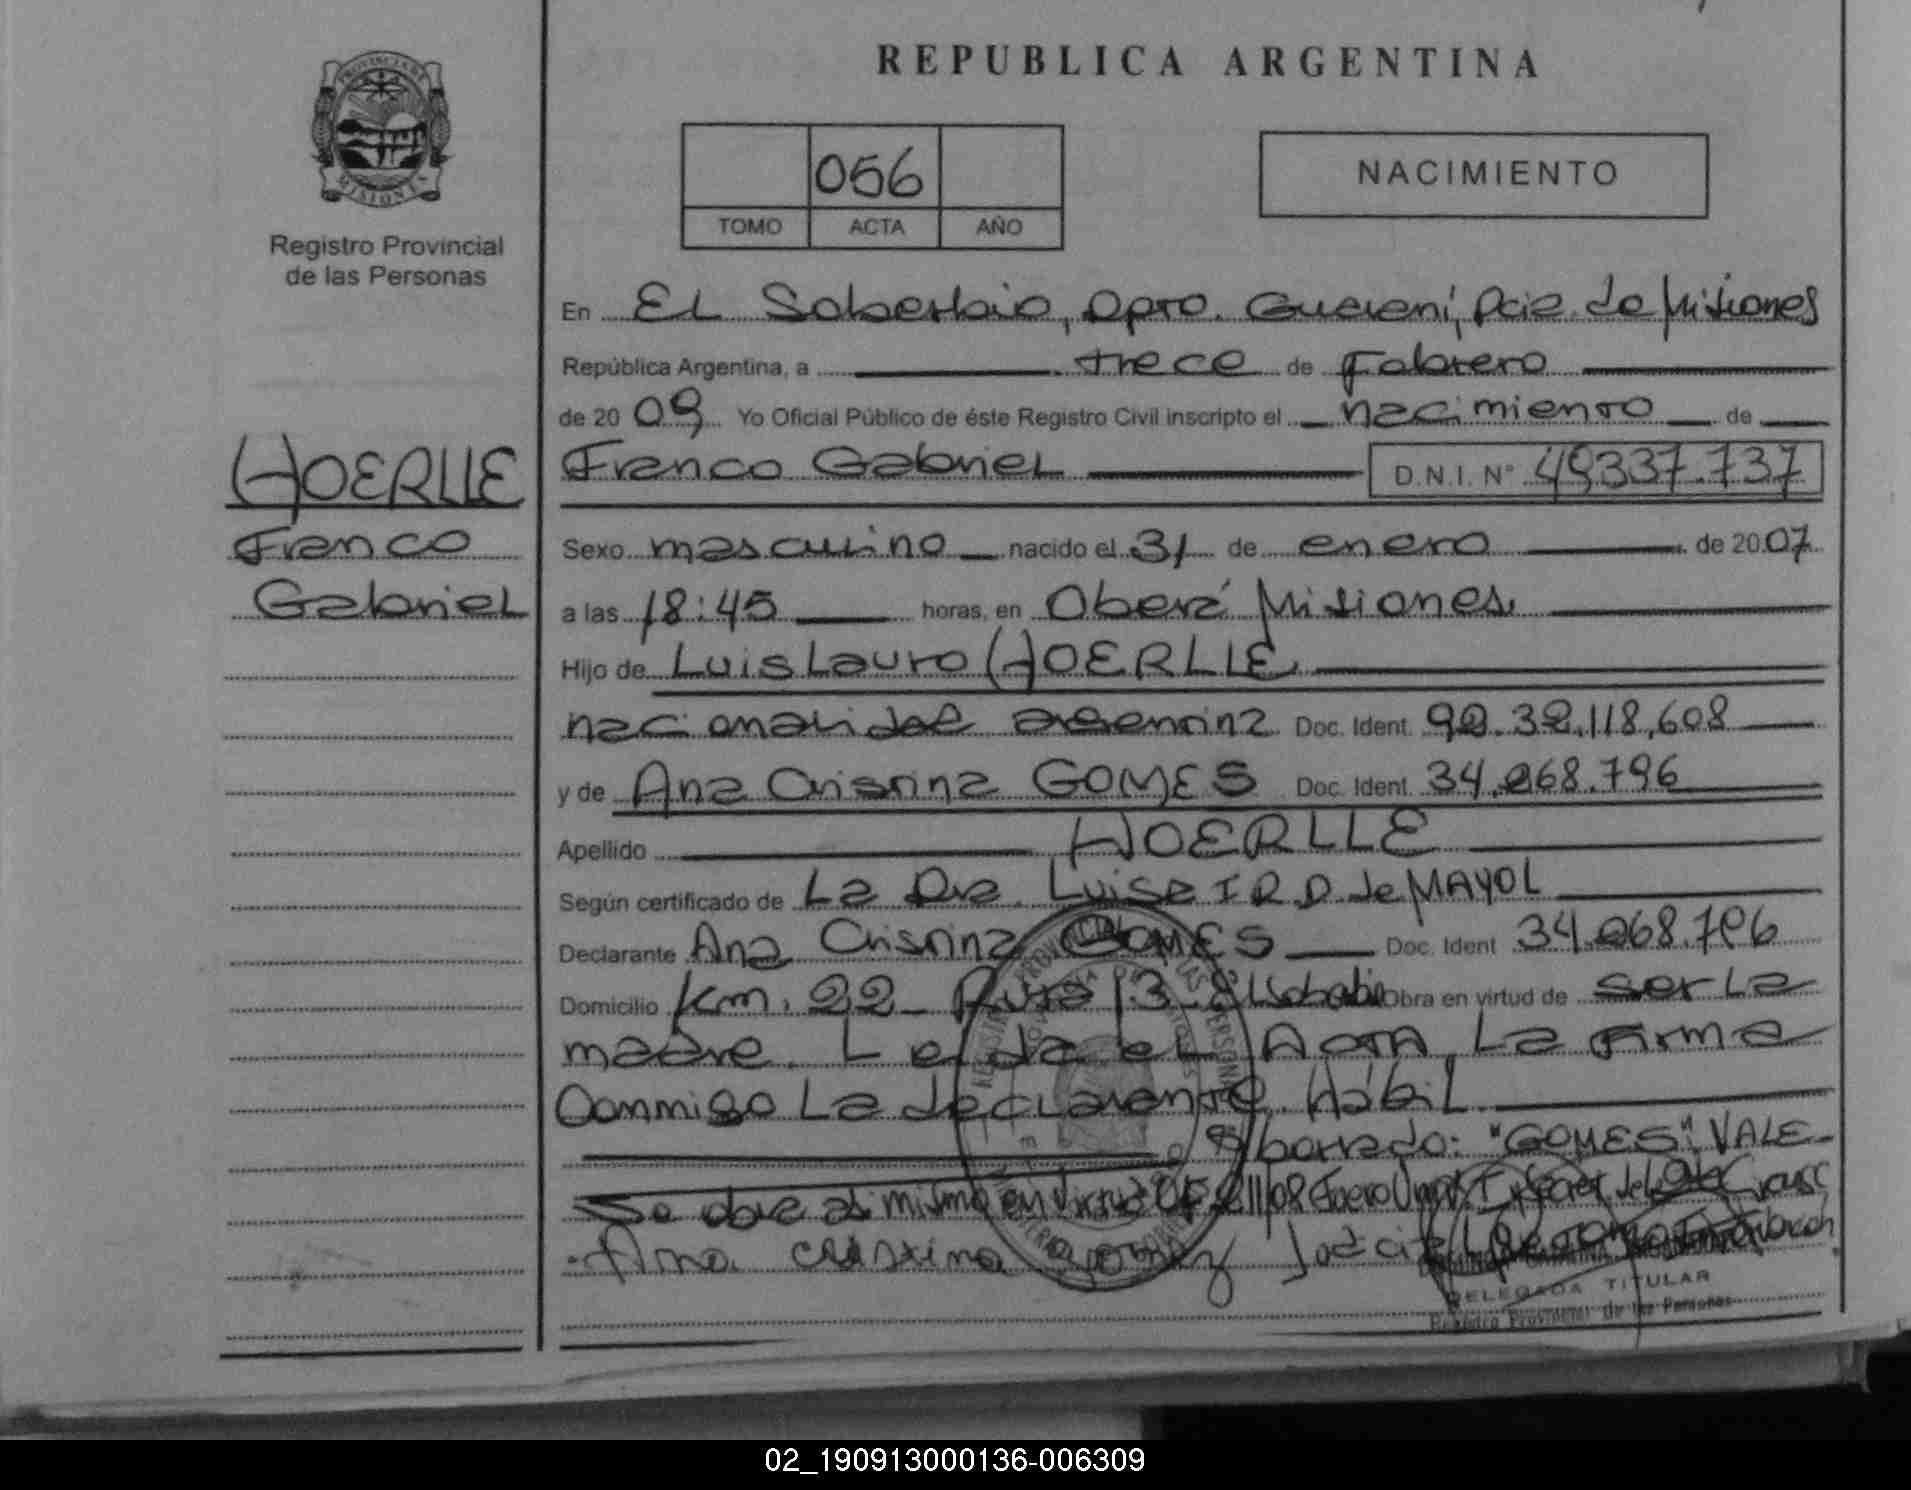 REPUBLICA ARGENTINA
PROVINCIA DE
MISIONES
Registro Provincial
de las Personas
056
TOMO ACTA AÑO
NACIMIENTO
En El Soberbio, Dpto. Guarani, Pcia. de Misiones
República Argentina, a trece de Febrero
de 2009 Yo Oficial Público de éste Registro Civil inscripto el nacimiento de
Franco Gabriel D.N.I. N° 49337.737
HOERLLE
Franco
Gabriel
Sexo masculino nacido el 31 de enero de 2007
a las 18:45 horas, en Oberá Misiones.
Hijo de Luis Lauro HOERLLE.
nacionalidad argentina Doc. Ident. 32.118.608
y de Ana Cristina GOMES Doc. Ident. 34.068.796
Apellido HOERLLE
Según certificado de La Dra. Luisa I R.D. de MAYOL
Declarante Ana Cristina GOMES Doc. Ident 34.068.796
Domicilio Km. 22 - Ruta 13 - El Soberbio Obra en virtud de ser la
madre. Leída el Acta, La Firma
Conmigo La declarante, Hábil.
S/borrado: "GOMES". VALE-
Se obra así mismo en virtud
Ana cristina gomez
DELEGADA TITULAR
Registro Provincial de las Personas
02_190913000136-006309